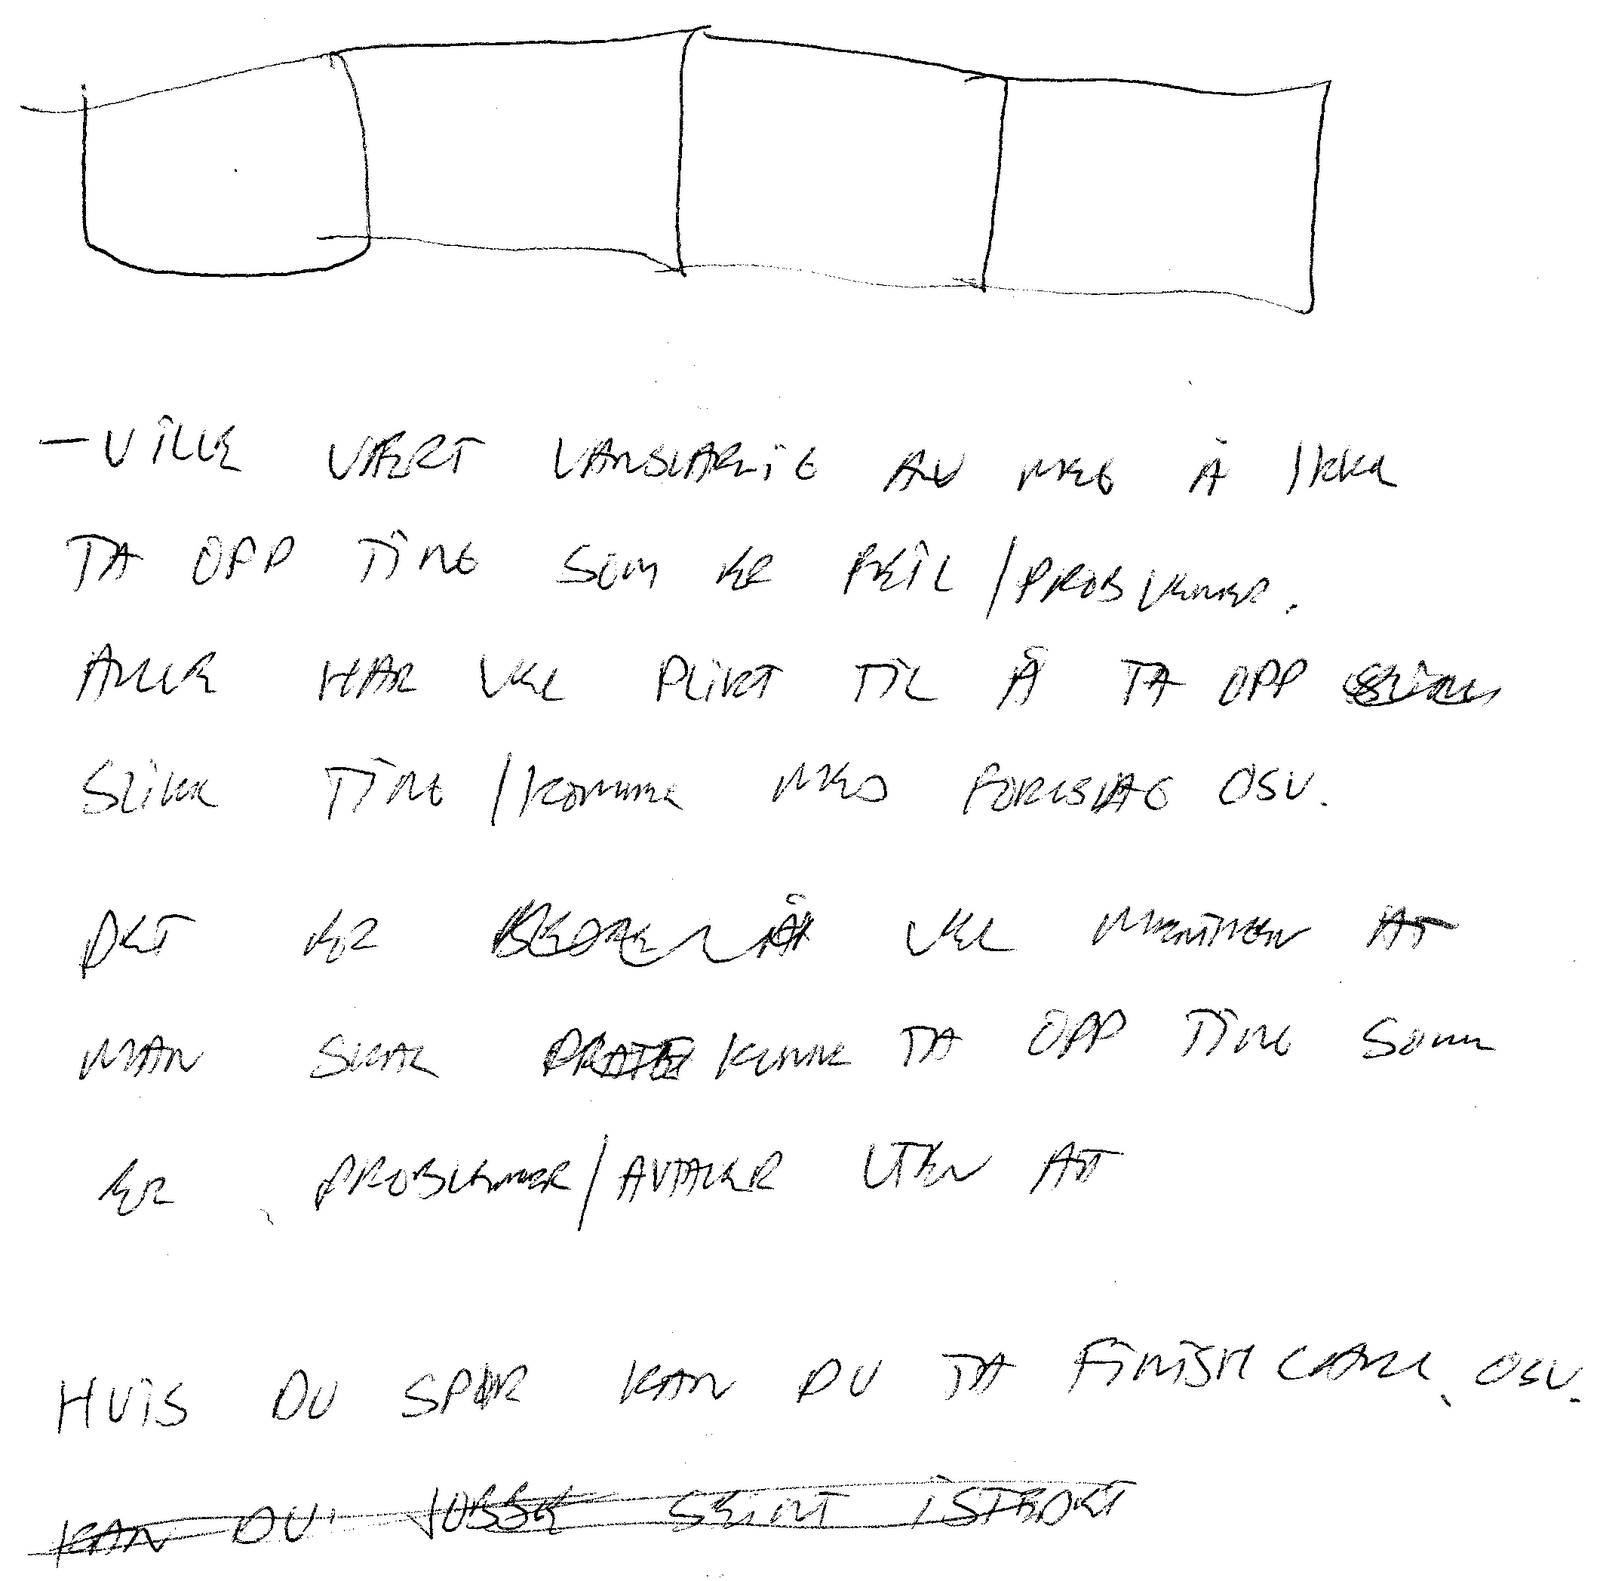 - VILLE VÆRT VANSKELIG AV MEG Å IKKE
TA OPP TING SOM ER FEIL/PROBLEMER.
ALLE HAR VEL PLIKT TIL Å TA OPP
SLIKE TING/KOMME MED FORESLAG OSV.
DET ER BEDRE VEL MENINGEN AT
MAN SKAL PRATE KUNNE TA OPP TING SOM
ER PROBLEMER/AVTALER UTEN AT
HVIS DU SPØR KAN DU TA FINISH CARE OSV.
KAN DU JOBBE SEINT ISTEDET